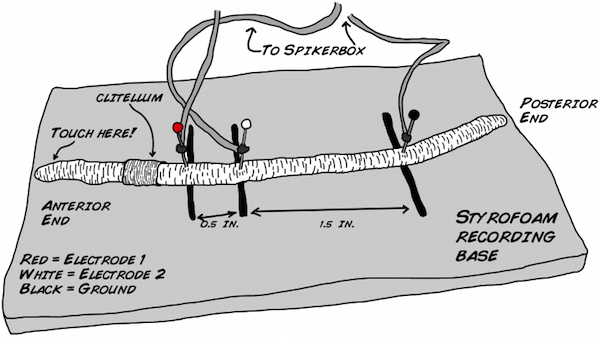 To Spikerbox
clitellum
Touch here!
Posterior
End
Anterior
End
0.5 in.
1.5 in.
Styrofoam
recording
base
Red = Electrode 1
White = Electrode 2
Black = Ground